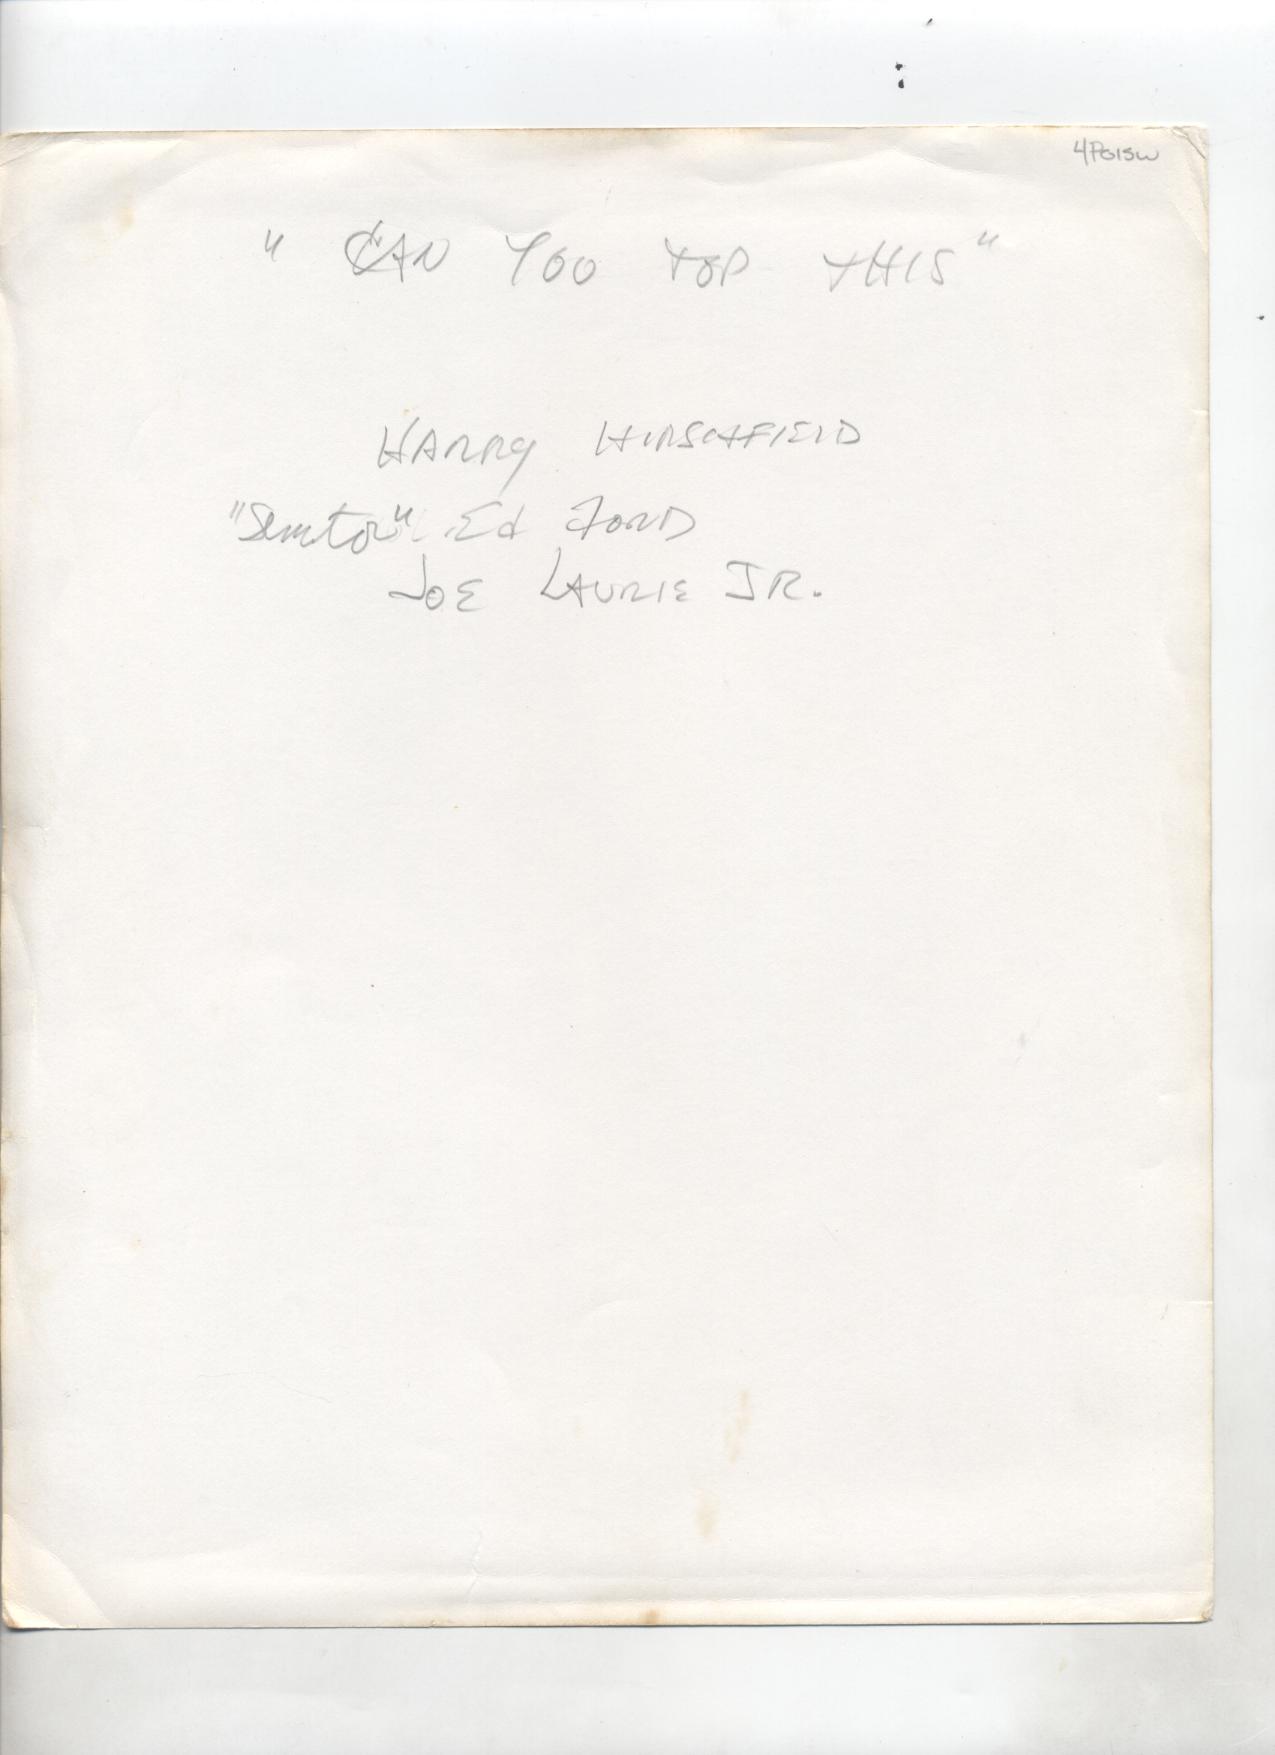 4PGISW
" CAN YOU TOP THIS "
HARRY HIRSCHFIELD
"Senator" Ed FORD
JOE LAURIE JR.